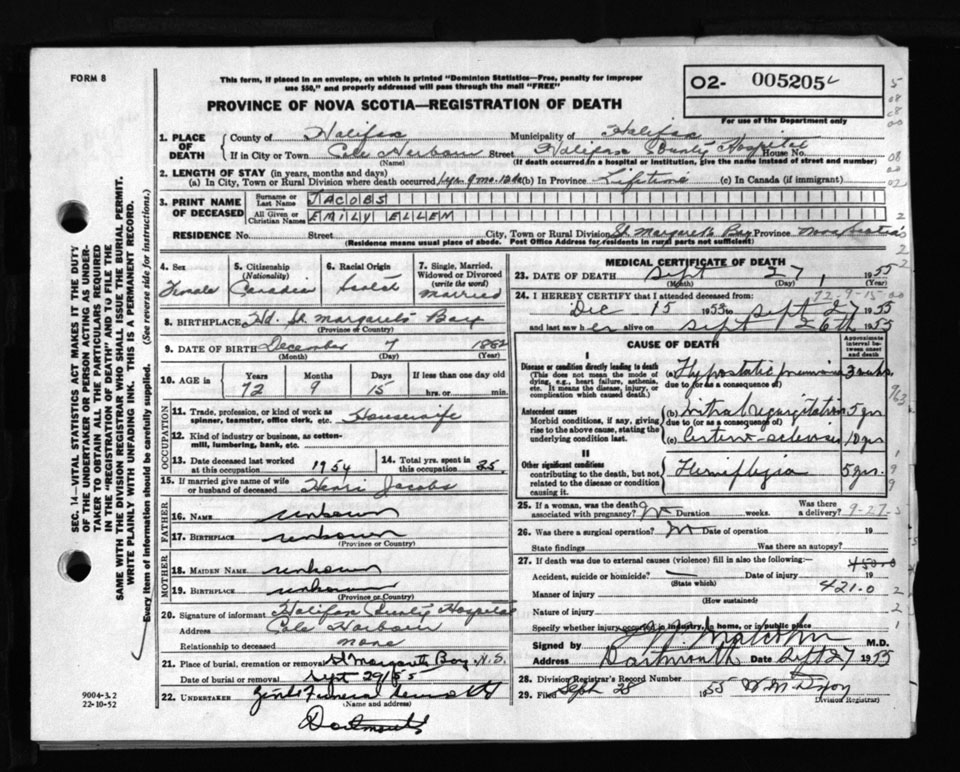 FORM 8
This form, if placed in an envelope, on which is printed "Dominion Statistics—Free, penalty for improper
use $50," and properly addressed will pass through the mail "FREE"
O2- 005205
For use of the Department only
PROVINCE OF NOVA SCOTIA—REGISTRATION OF DEATH
1. PLACE OF DEATH
County of Halifax Municipality of Halifax
If in City or Town Cole Harbour Street Halifax County Hospital House No.
(Name) (If death occurred in a hospital or institution, give the name instead of street and number)
2. LENGTH OF STAY (in years, months and days)
(a) In City, Town or Rural Division where death occurred 1 yr. 9 mo. 12 da (b) In Province Lifetime (c) In Canada (if immigrant)
3. PRINT NAME OF DECEASED
Surname or Last Name JACOBS
All Given or Christian Names EMILY ELLEN
RESIDENCE No. Street City, Town or Rural Division St. Margaret's Bay Province Nova Scotia
(Residence means usual place of abode. Post Office Address for residents in rural parts not sufficient)
4. Sex Female
5. Citizenship (Nationality) Canadian
6. Racial Origin Scotch
7. Single, Married, Widowed or Divorced (write the word) Married
8. BIRTHPLACE Hd. St. Margarets Bay
(Province or Country)
9. DATE OF BIRTH December 7 1882
(Month) (Day) (Year)
10. AGE in Years Months Days If less than one day old
72 9 15 hrs. or min.
OCCUPATION
11. Trade, profession, or kind of work as spinner, teamster, office clerk, etc. Housewife
12. Kind of industry or business, as cotton-mill, lumbering, bank, etc.
13. Date deceased last worked at this occupation 1954
14. Total yrs. spent in this occupation 25
15. If married give name of wife or husband of deceased Henri Jacobs
FATHER
16. NAME unknown
17. BIRTHPLACE unknown
(Province or Country)
MOTHER
18. MAIDEN NAME unknown
19. BIRTHPLACE unknown
(Province or Country)
20. Signature of informant Halifax County Hospital
Address Cole Harbour
Relationship to deceased none
21. Place of burial, cremation or removal St Margarets Bay, N.S.
Date of burial or removal Sept 29/55
22. UNDERTAKER Funeral
(Name and address)
Dartmouth
9004-3.2
22-10-52
MEDICAL CERTIFICATE OF DEATH
23. DATE OF DEATH Sept 27, 1955
(Month) (Day) (Year)
72-9-15
24. I HEREBY CERTIFY that I attended deceased from:
Dec 15 1953 to Sept 27 1955
and last saw her alive on Sept 26th 1955
CAUSE OF DEATH
Approximate interval between onset and death
I
Disease or condition directly leading to death
(This does not mean the mode of dying, e.g., heart failure, asthenia, etc. It means the disease, injury, or complication which caused death.)
(a) Hypostatic pneumonia 3 wks.
due to (or as a consequence of)
Antecedent causes
Morbid conditions, if any, giving rise to the above cause, stating the underlying condition last.
(b) mitral regurgitation 5 yr
due to (or as a consequence of)
(c) 10 yr
II
Other significant conditions
contributing to the death, but not related to the disease or condition causing it.
Hemiplegia 5 yr.
25. If a woman, was the death associated with pregnancy? No Duration weeks. Was there a delivery?
9-27-5
26. Was there a surgical operation? No Date of operation 19
State findings Was there an autopsy?
27. If death was due to external causes (violence) fill in also the following:
Accident, suicide or homicide? Date of injury 19
(State which)
Manner of injury 421.0
(How sustained)
Nature of injury
Specify whether injury occurred in industry, in home, or in public place
Signed by Malcolm M.D.
Address Dartmouth Date Sept 27 1955
28. Division Registrar's Record Number
29. Filed Sept 28 1955 W. M.
Division Registrar)
SEC. 14—VITAL STATISTICS ACT MAKES IT THE DUTY
OF THE UNDERTAKER OR PERSON ACTING AS UNDER-
TAKER TO OBTAIN ALL THE PARTICULARS REQUIRED
IN THE "REGISTRATION OF DEATH" AND TO FILE THE
SAME WITH THE DIVISION REGISTRAR WHO SHALL ISSUE THE BURIAL PERMIT.
WRITE PLAINLY WITH UNFADING INK. THIS IS A PERMANENT RECORD.
Every item of information should be carefully supplied. (See reverse side for instructions.)